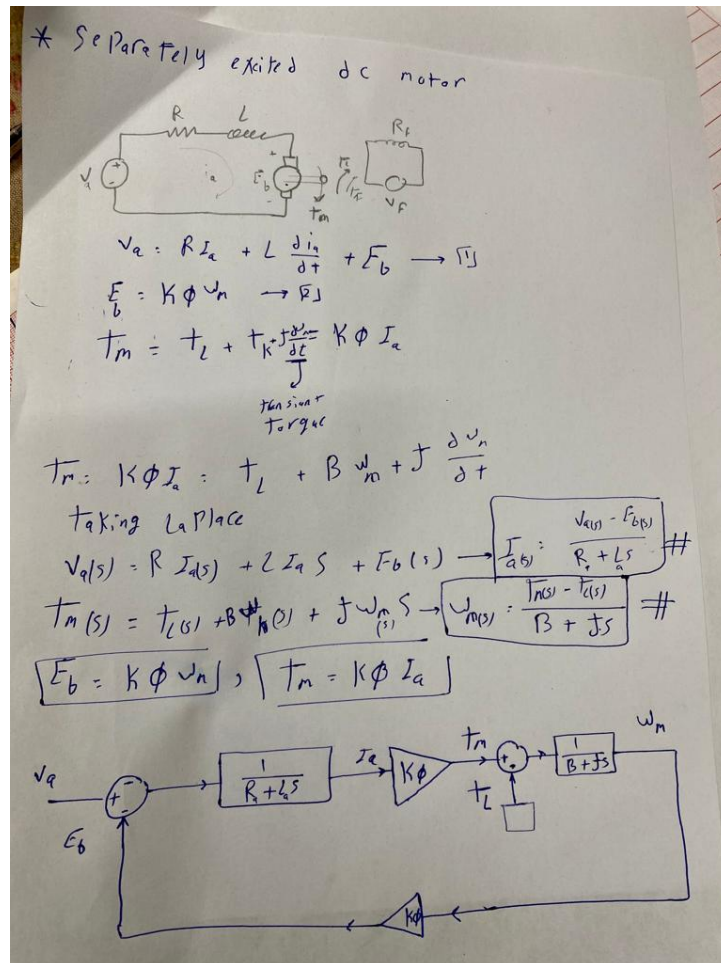 * Separately excited dc motor
R L
Va ia Eb Tm
Rf
Vf
Va = R Ia + L dia/dt + Eb → [1]
Eb = K φ ωm → [2]
Tm = TL + TK + J dωm/dt = K φ Ia
tansiant
torque
Tm = K φ Ia = TL + B ωm + J dωm/dt
taking LaPlace
Va(s) = R Ia(s) + L Ia S + Eb(s) → Ia(s) = Va(s) - Eb(s) / Ra + La S #
Tm(s) = TL(s) + B ωm(s) + J ωm(s) S → ωm(s) = Tm(s) - TL(s) / B + JS #
Eb = K φ ωm , Tm = K φ Ia
Va + - Eb 1 / Ra + La S Ia Kφ Tm + TL 1 / B + JS ωm
Kφ